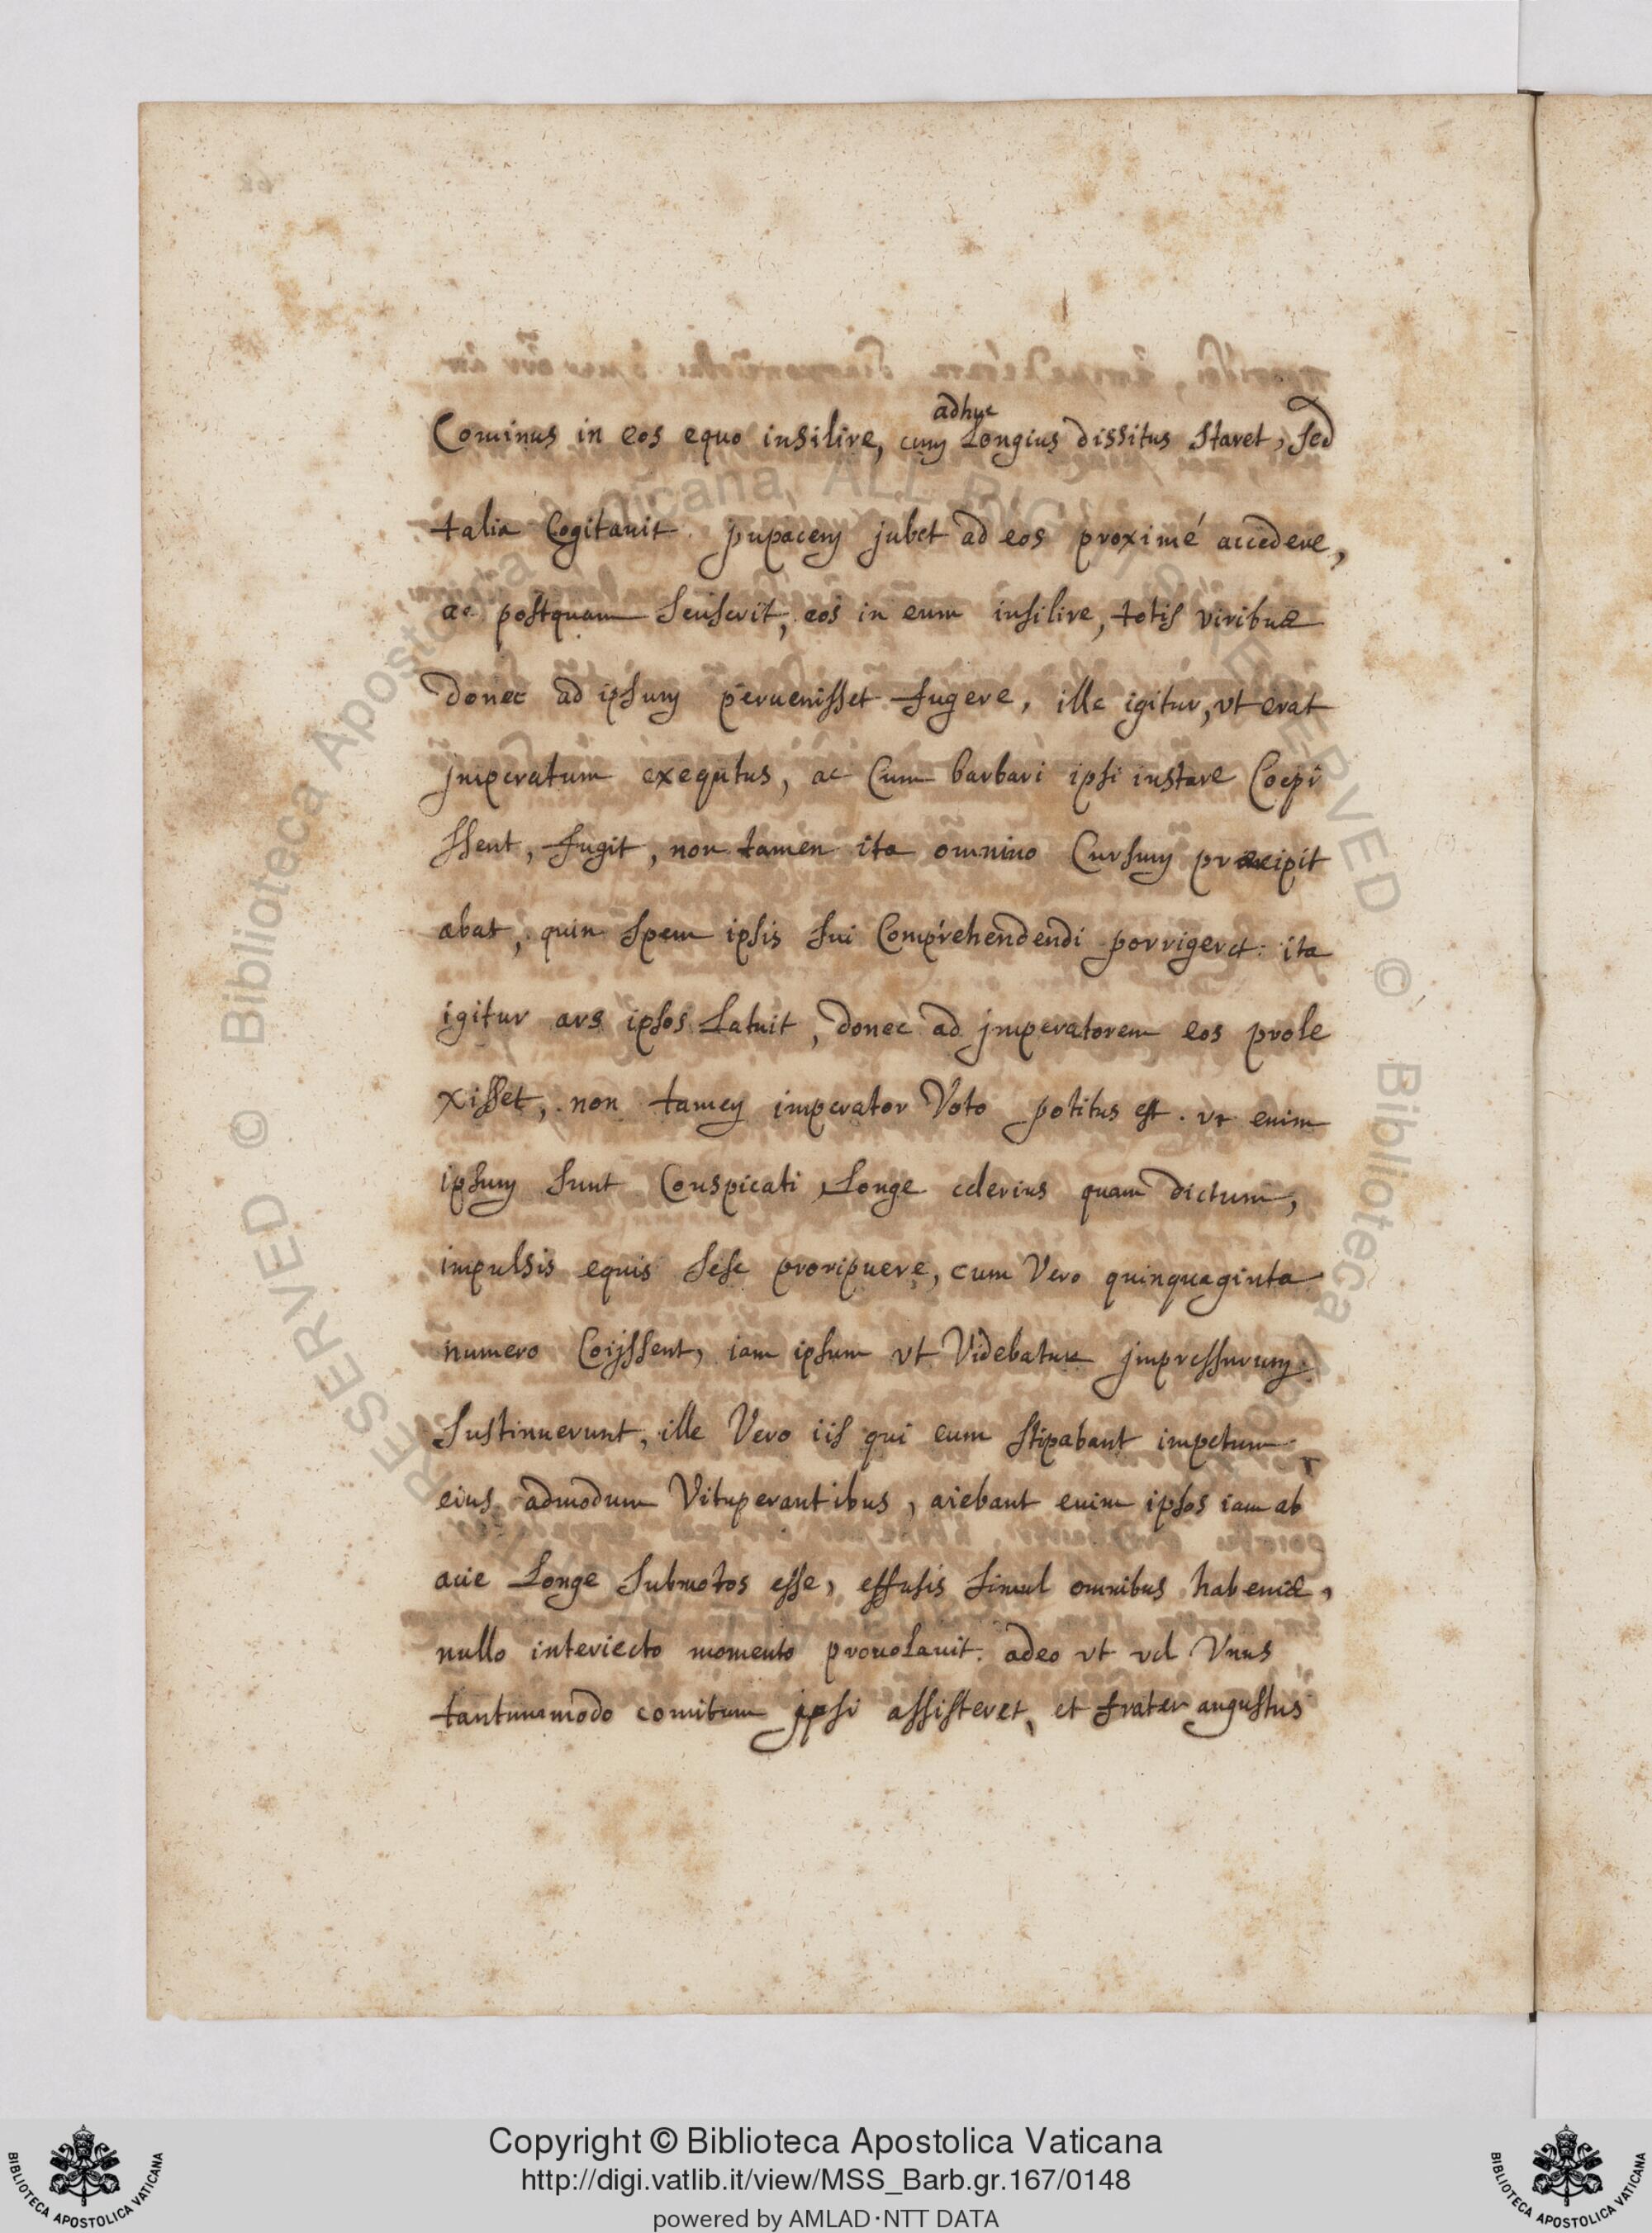 adhuc
Cominus in eos equo insilire, cum Longius dissitus staret, sed
talia Cogitavit. pupacem jubet ad eos proximé accedere,
ac postquam senserit, eos in eum insilire, totis viribus
donec ad ipsum pervenisset fugere, ille igitur, vt erat
jmperatum exequtus, ac Cum barbari ipsi instare Coepi
ssent, fugit, non tamen ita omnino Cursum præcipit
abat, quin spem ipsis sui Comprehendendi porrigeret: ita
igitur ars ipsos Latuit, donec ad jmperatorem eos prole
xisset, non tamen imperator Voto potitus est. vt enim
ipsum sunt Conspicati Longe celerius quam dictum,
impulsis equis sese proripuere, cum Vero quinquaginta
numero Coijssent, iam ipsum vt Videbatur jmpressurum
Sustinuerunt, ille Vero iis qui eum stipabant impetum
eius admodum Vituperantibus, aiebant enim ipsos iam ab
acie Longe submotos esse, effusis simul omnibus habenis,
nullo interiecto momento provolavit. adeo vt vel Vnus
tantummodo comitum ipsi assisteret, et frater augustus
Copyright © Biblioteca Apostolica Vaticana
http://digi.vatlib.it/view/MSS_Barb.gr.167/0148
powered by AMLAD·NTT DATA
BIBLIOTECA APOSTOLICA VATICANA
BIBLIOTECA APOSTOLICA VATICANA